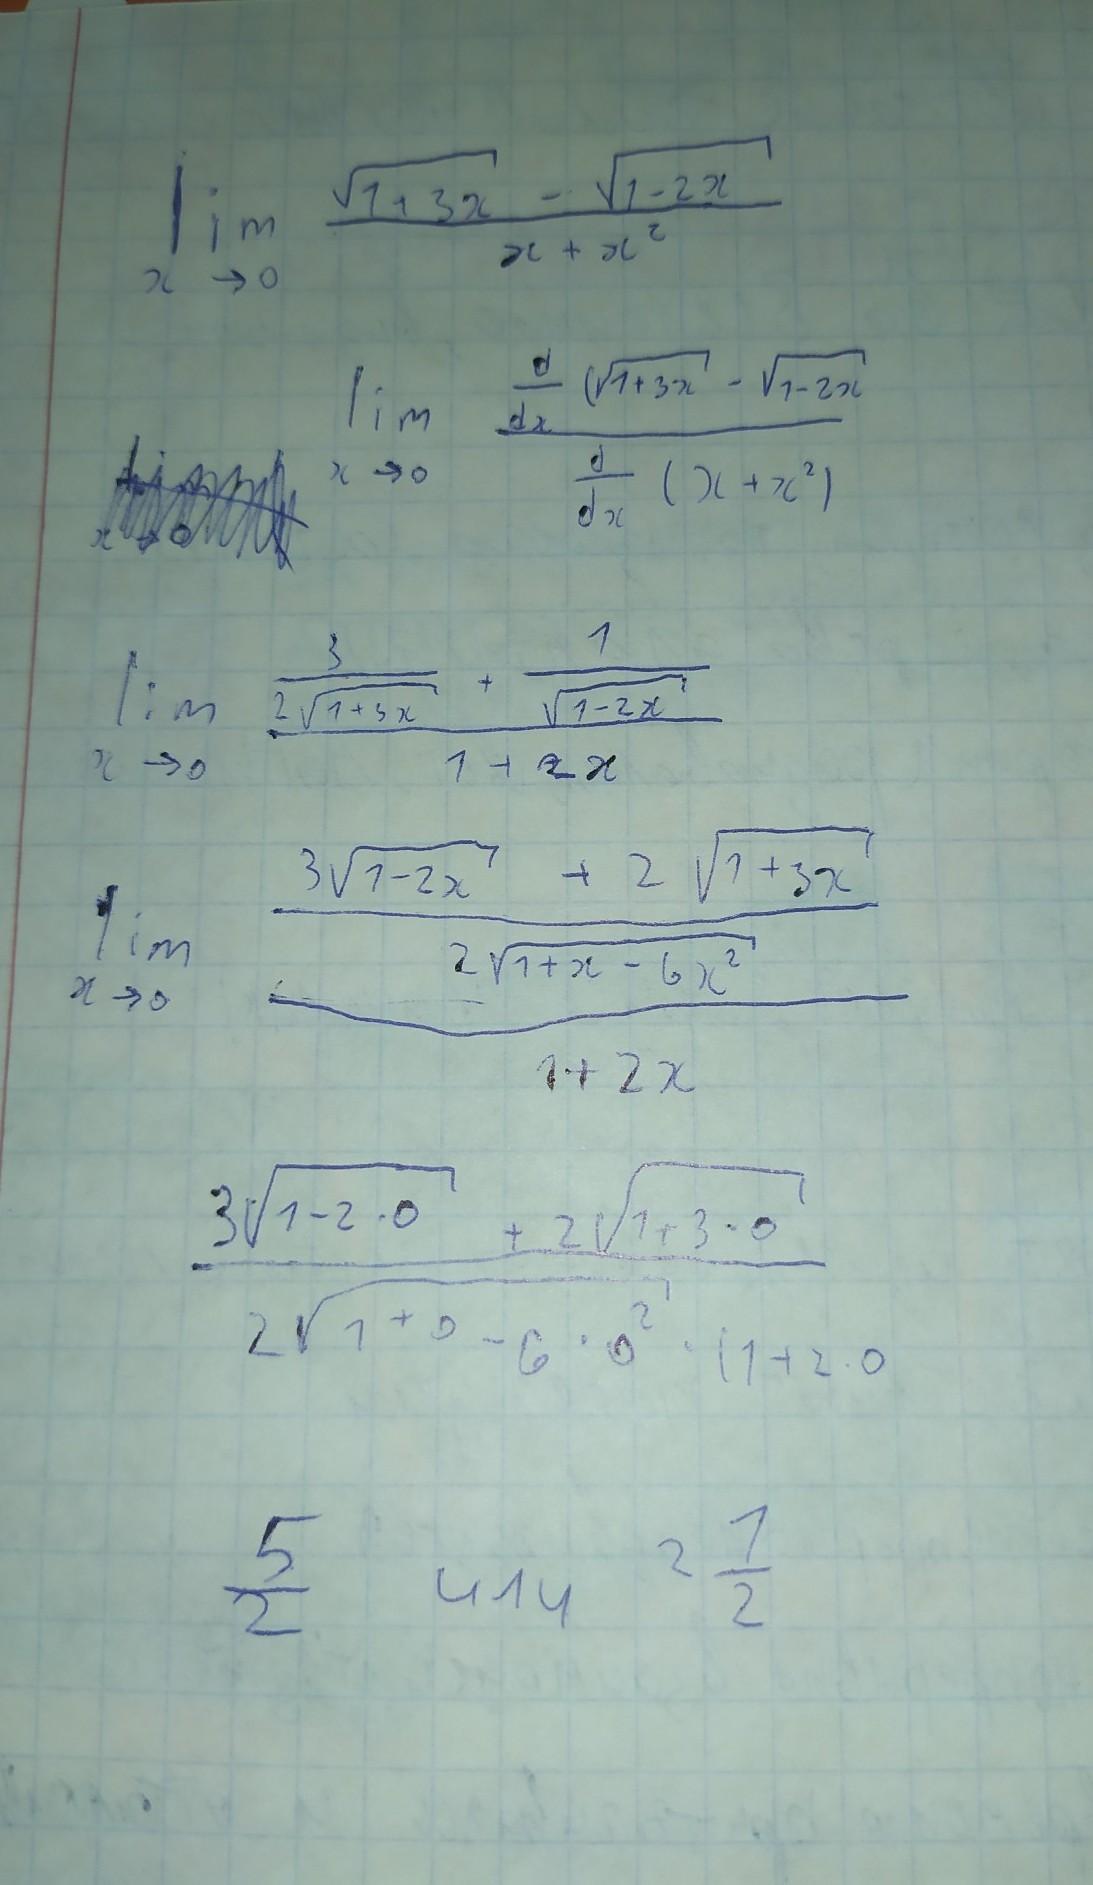 lim x→0 (√(1+3x) - √(1-2x)) / (x + x²)
lim x→0 (d/dx (√(1+3x) - √(1-2x)) / (d/dx (x + x²))
x → 0
lim x→0 (3/(2√(1+3x)) + 1/√(1-2x)) / (1 + 2x)
lim x→0 ((3√(1-2x) + 2√(1+3x)) / (2√(1+x-6x²))) / (1+2x)
(3√(1-2·0) + 2√(1+3·0)) / (2√(1+0-6·0²) · (1+2·0
5/2 или 2 1/2